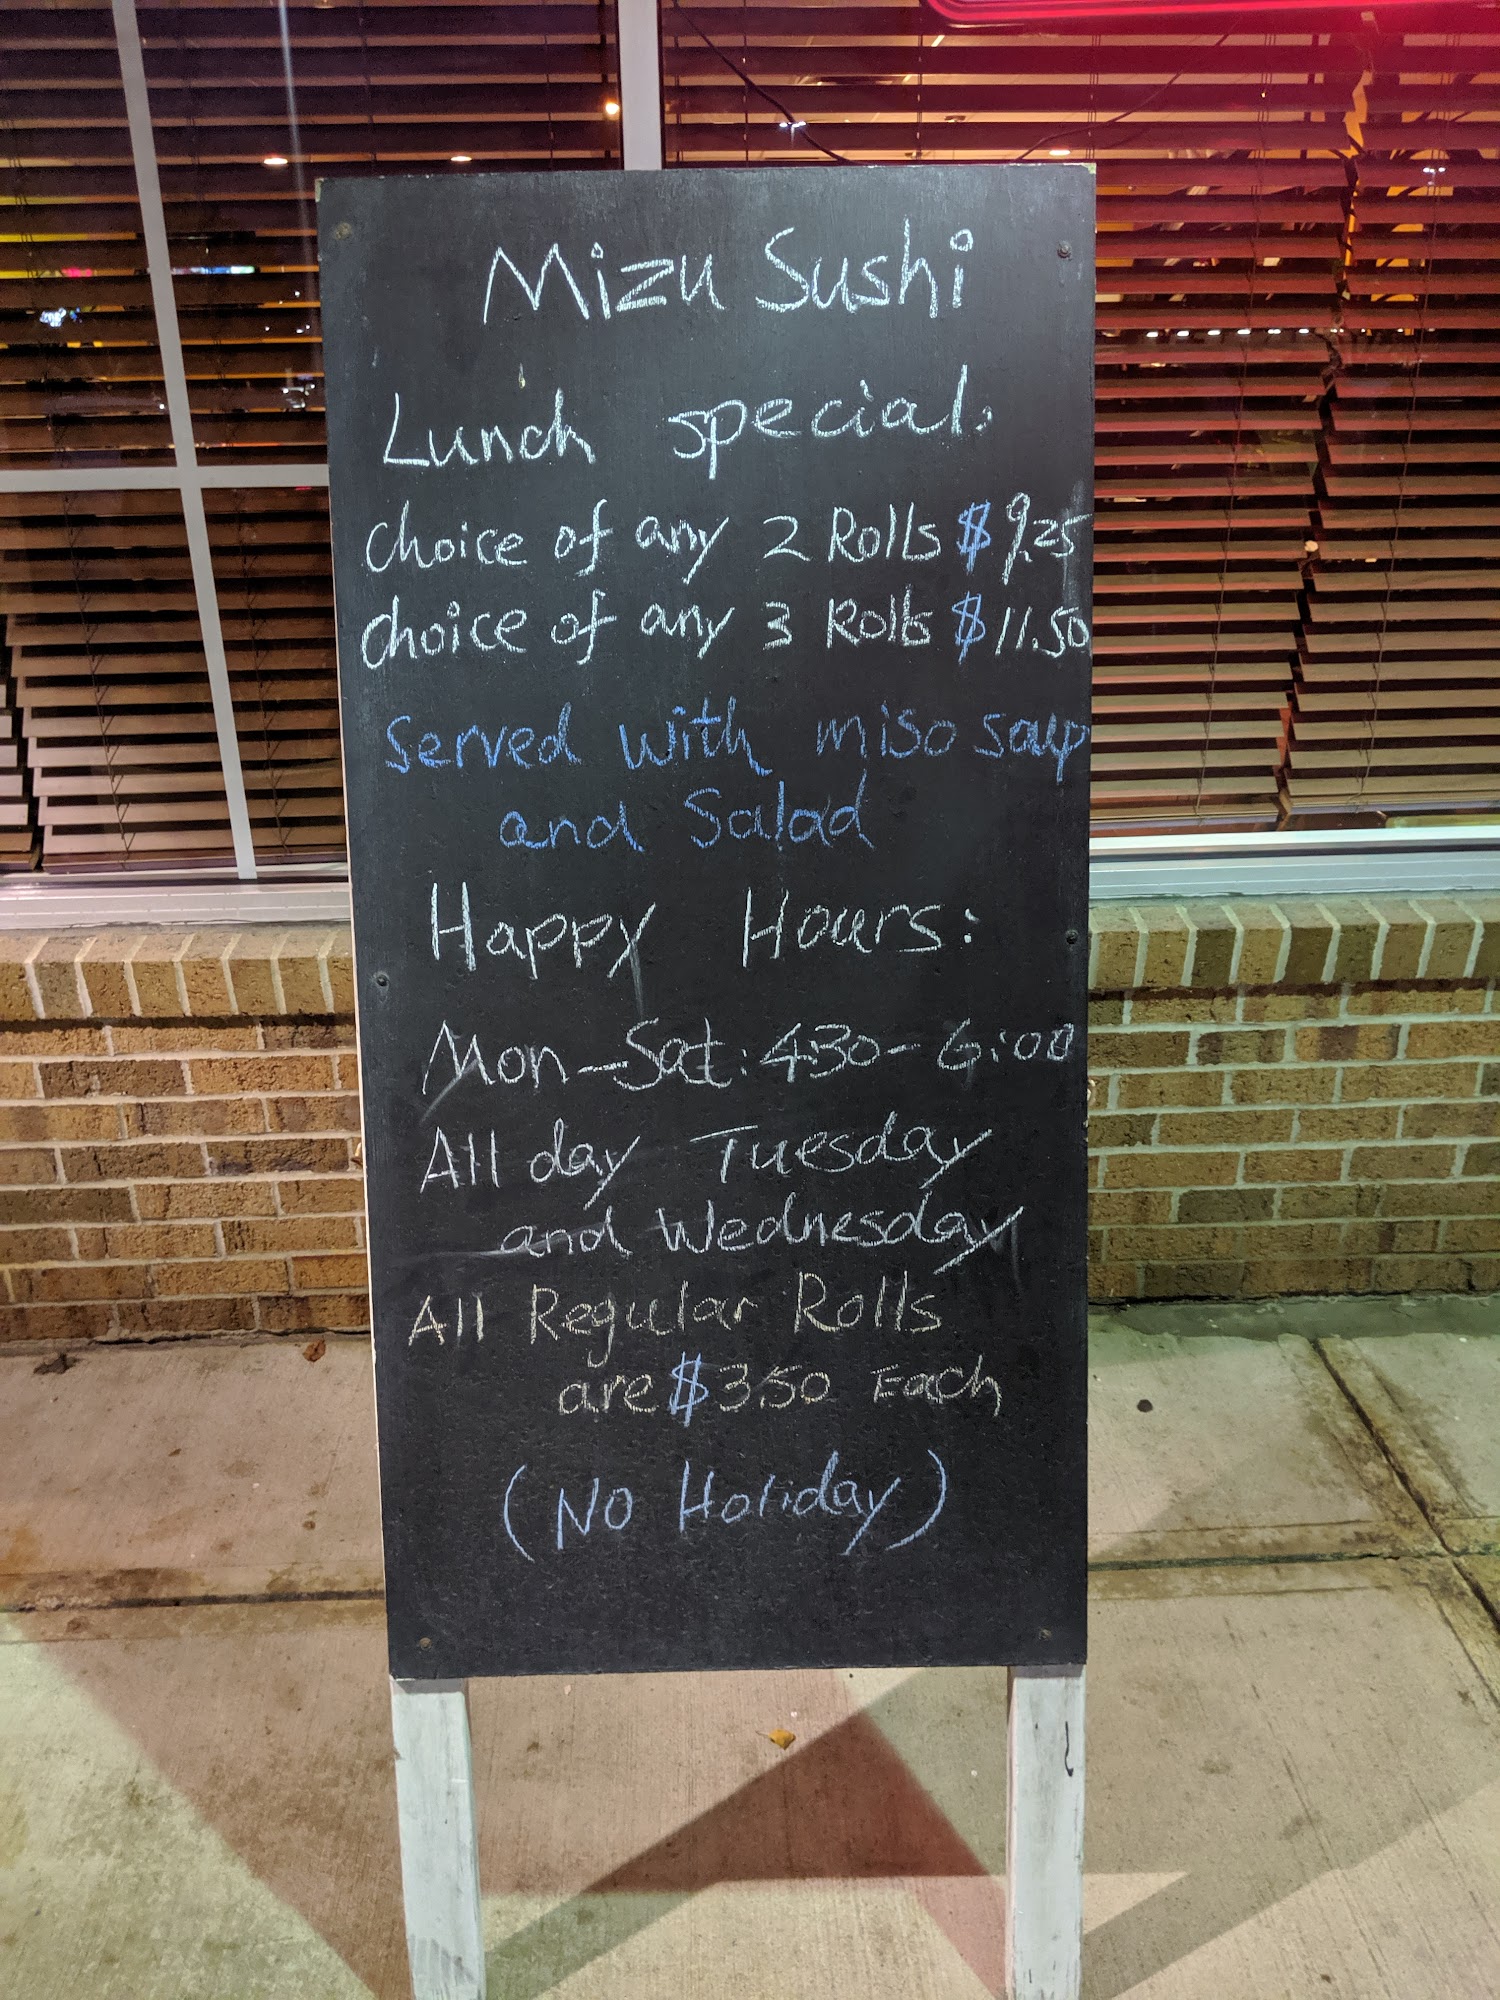 Mizu Sushi
Lunch special:
choice of any 2 Rolls $9.25
choice of any 3 Rolls $11.50
Served with miso soup
and Salad
Happy Hours:
Mon-Sat: 4:30-6:00
All day Tuesday
and Wednesday
All Regular Rolls
are $3.50 Each
(No Holiday)